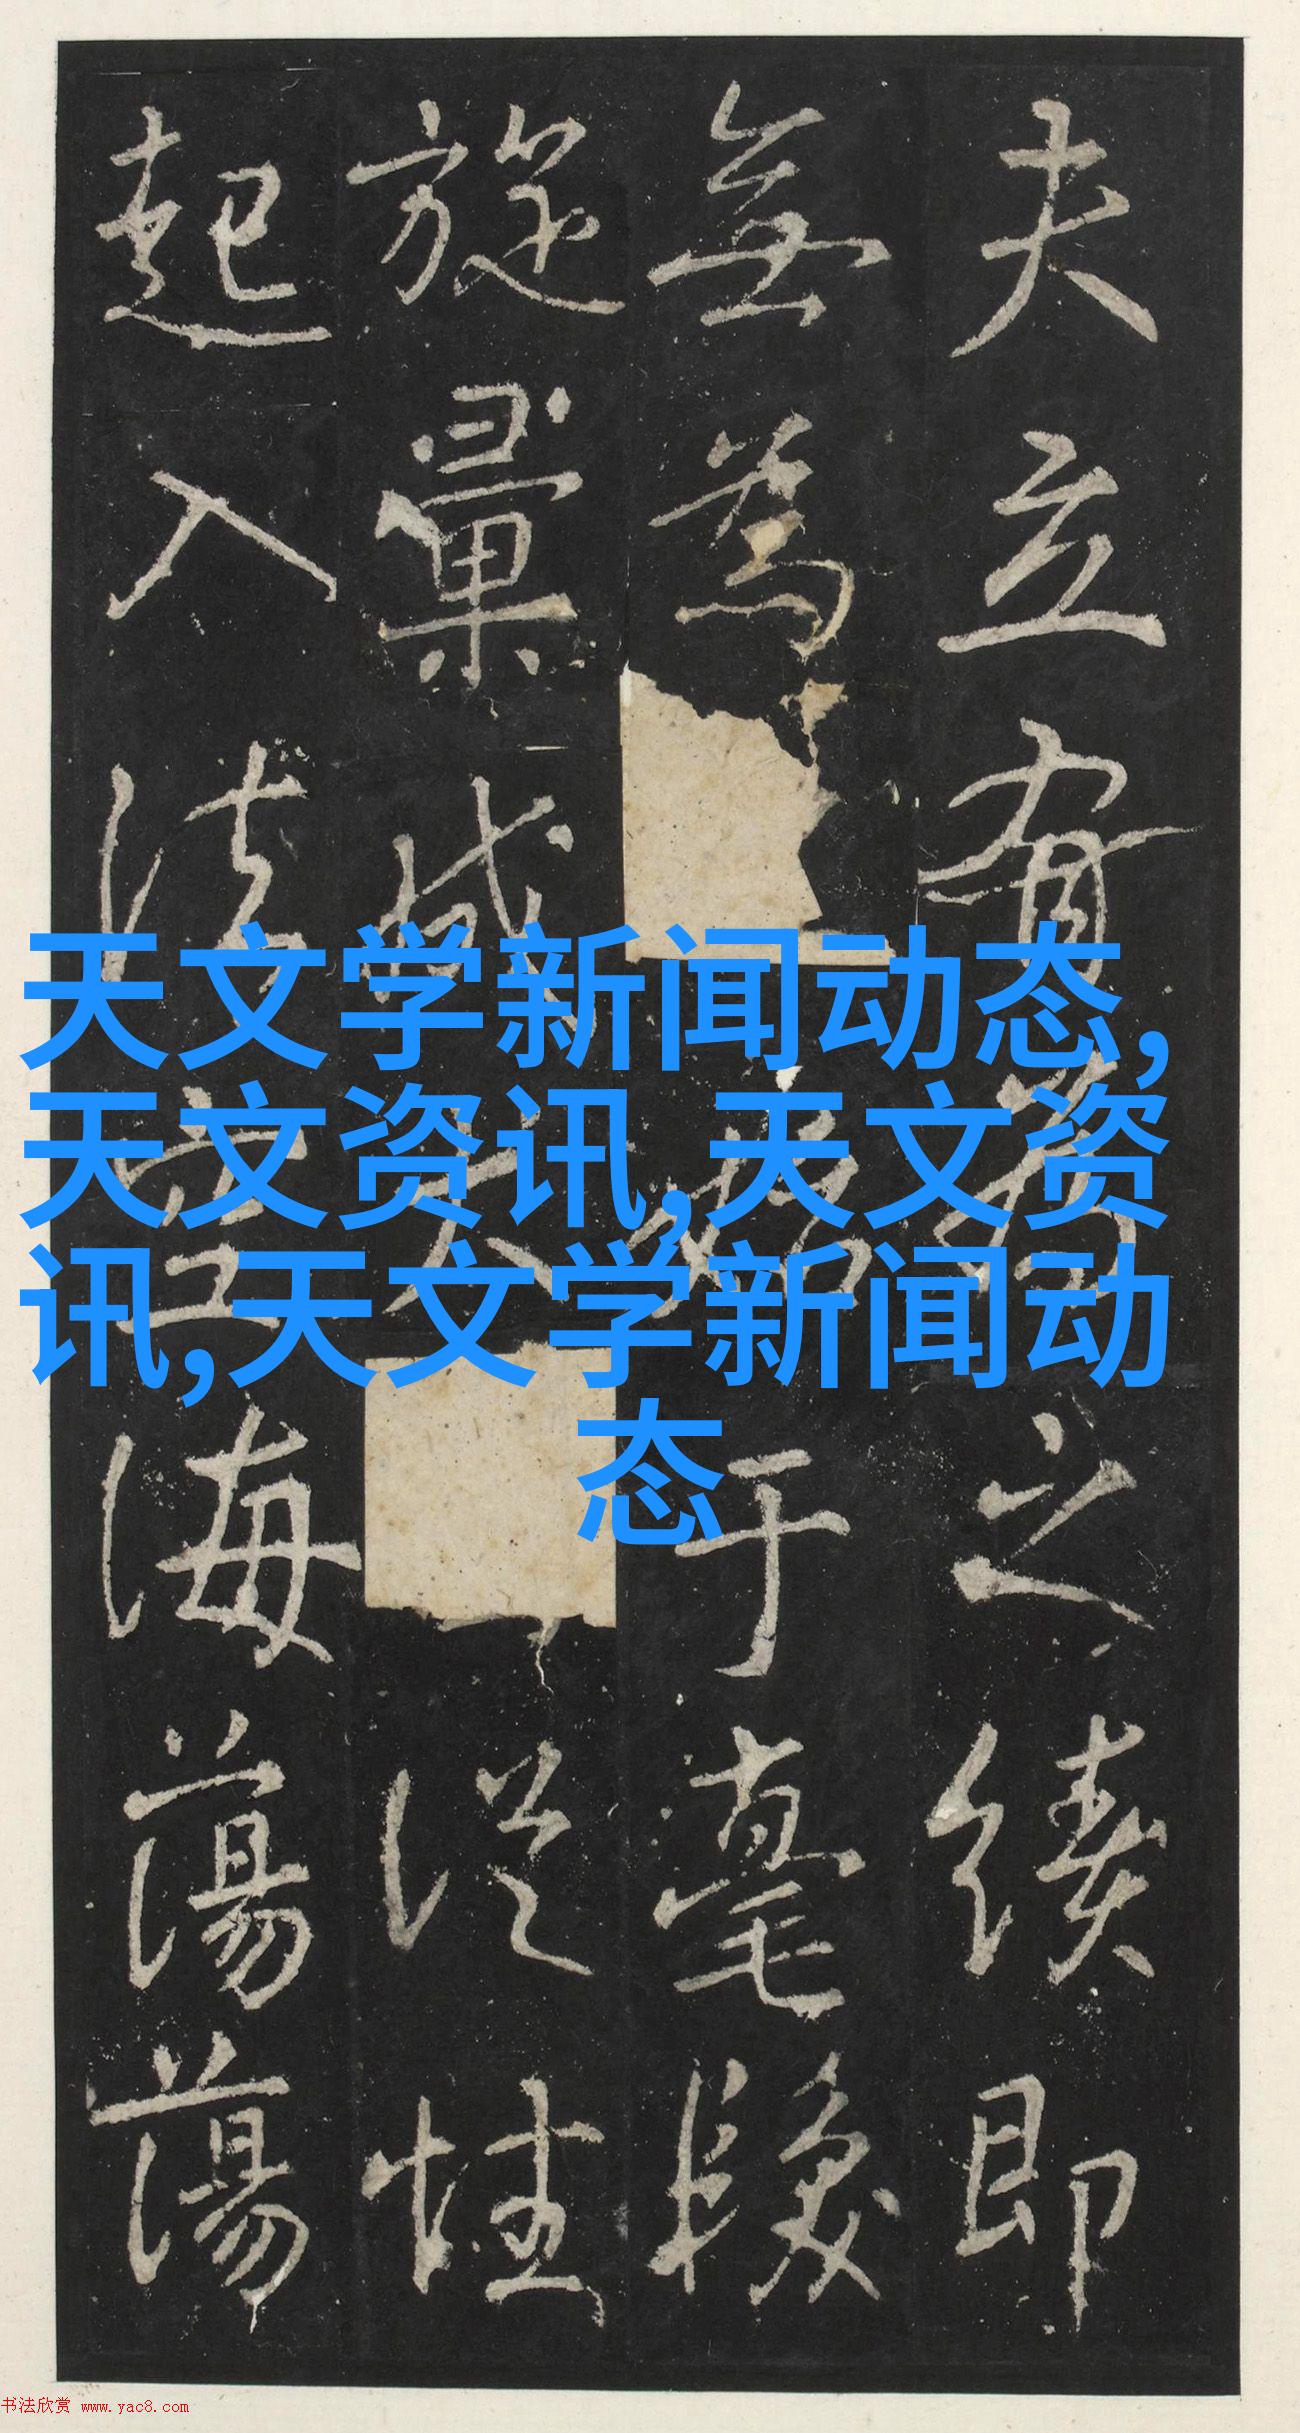 夫立有之續即
無為于毫
旋從性
起入法海蕩蕩
天文学新闻动态,
天文资讯,天文资
讯,天文学新闻动
态
书法欣赏 www.yac8.com